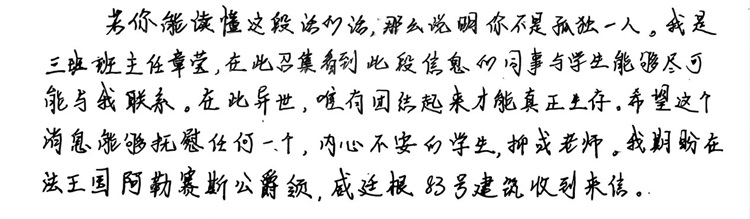 若你能读懂这段话的话,那么说明你不是孤独一人。我是
三班班主任章莹,在此召集看到此段信息的同事与学生能够尽可
能与我联系。在此异世,唯有团结起来才能真正生存。希望这个
消息能够抚慰任何一个,内心不安的学生,抑或老师。我期盼在
法王国阿勒赛斯公爵领,威廷根83号建筑收到来信。